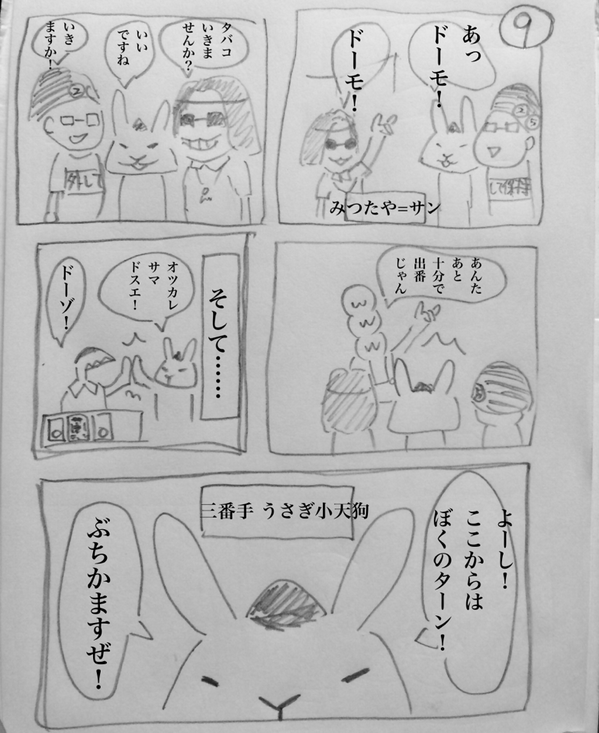 9
あっ
ドーモ!
ドーモ!
みつたや=サン
タバコ
いきま
せんか?
いい
ですね
いき
ますか!
外して
あんた
あと
十分で
出番
じゃん
w
w
w
そして……
オツカレ
サマ
ドスエ!
ドーゾ!
三番手 うさぎ小天狗
よーし!
ここからは
ぼくのターン!
ぶちかますぜ!